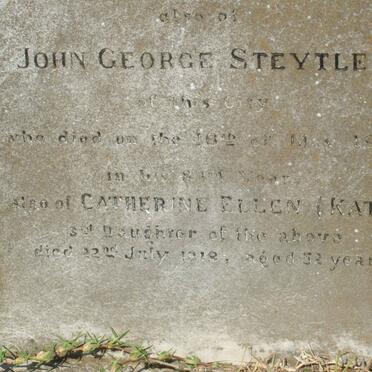 also of
JOHN GEORGE STEYTLE
of this City
who died on the 18th of May
in his Year
Also of CATHERINE ELLEN (KAT
3rd Daughter of the above
died 22nd July 1918, aged 52 year